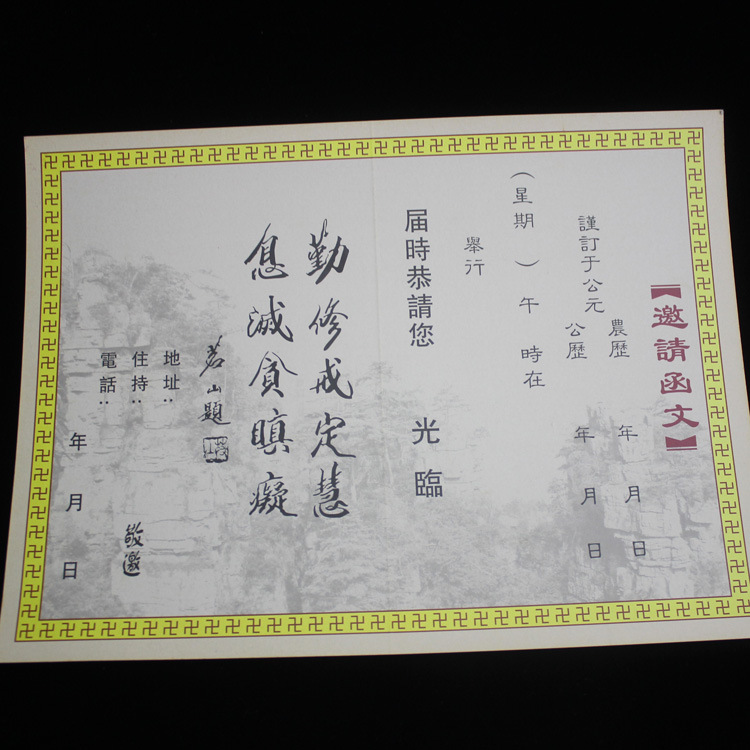 【邀請函文】
農歷 年 月 日
謹訂于公元
公歷 年 月 日
（星期 ）午 時在
舉行
届時恭請您 光臨
勤修戒定慧
息滅貪瞋癡
茗山題
地址：
住持：
電話：
敬邀
年 月 日